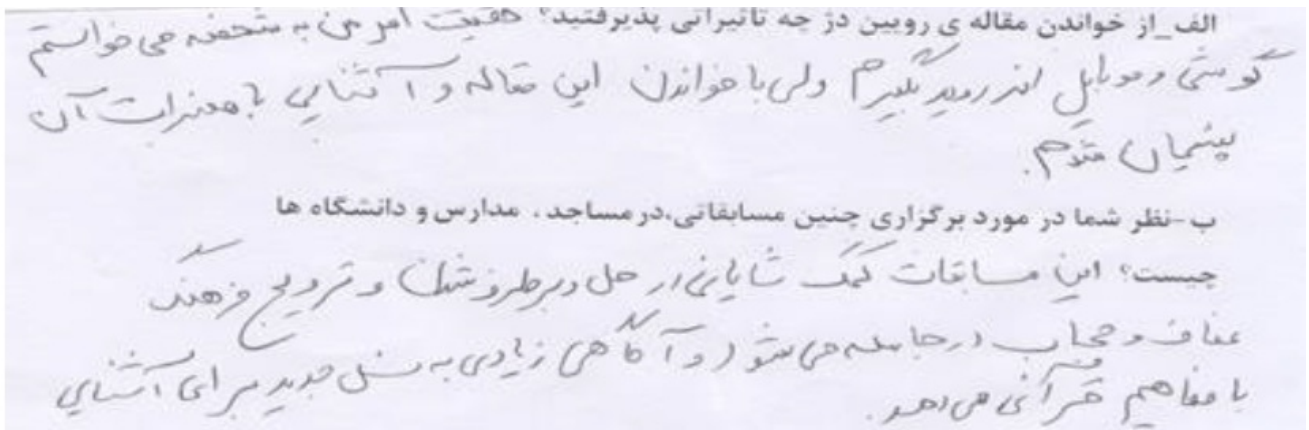 الف_از خواندن مقاله ی رویین دژ چه تاثیراتی پذیرفتید؟ حقیقت امر من به شخصه می خواستم
گوشی و موبایل اندروید بگیرم ولی با خواندن این مقاله و آشنایی با مضرات آن
پشیمان شدم.
ب-نظر شما در مورد برگزاری چنین مسابقاتی،در مساجد، مدارس و دانشگاه ها
چیست؟ این مسابقات کمک شایانی در حل و برطرف شدن و ترویج فرهنگ
عفاف و حجاب در جامعه می شود و آگاهی زیادی به نسل جدید برای آشنایی
با مفاهیم قرآنی می دهد.